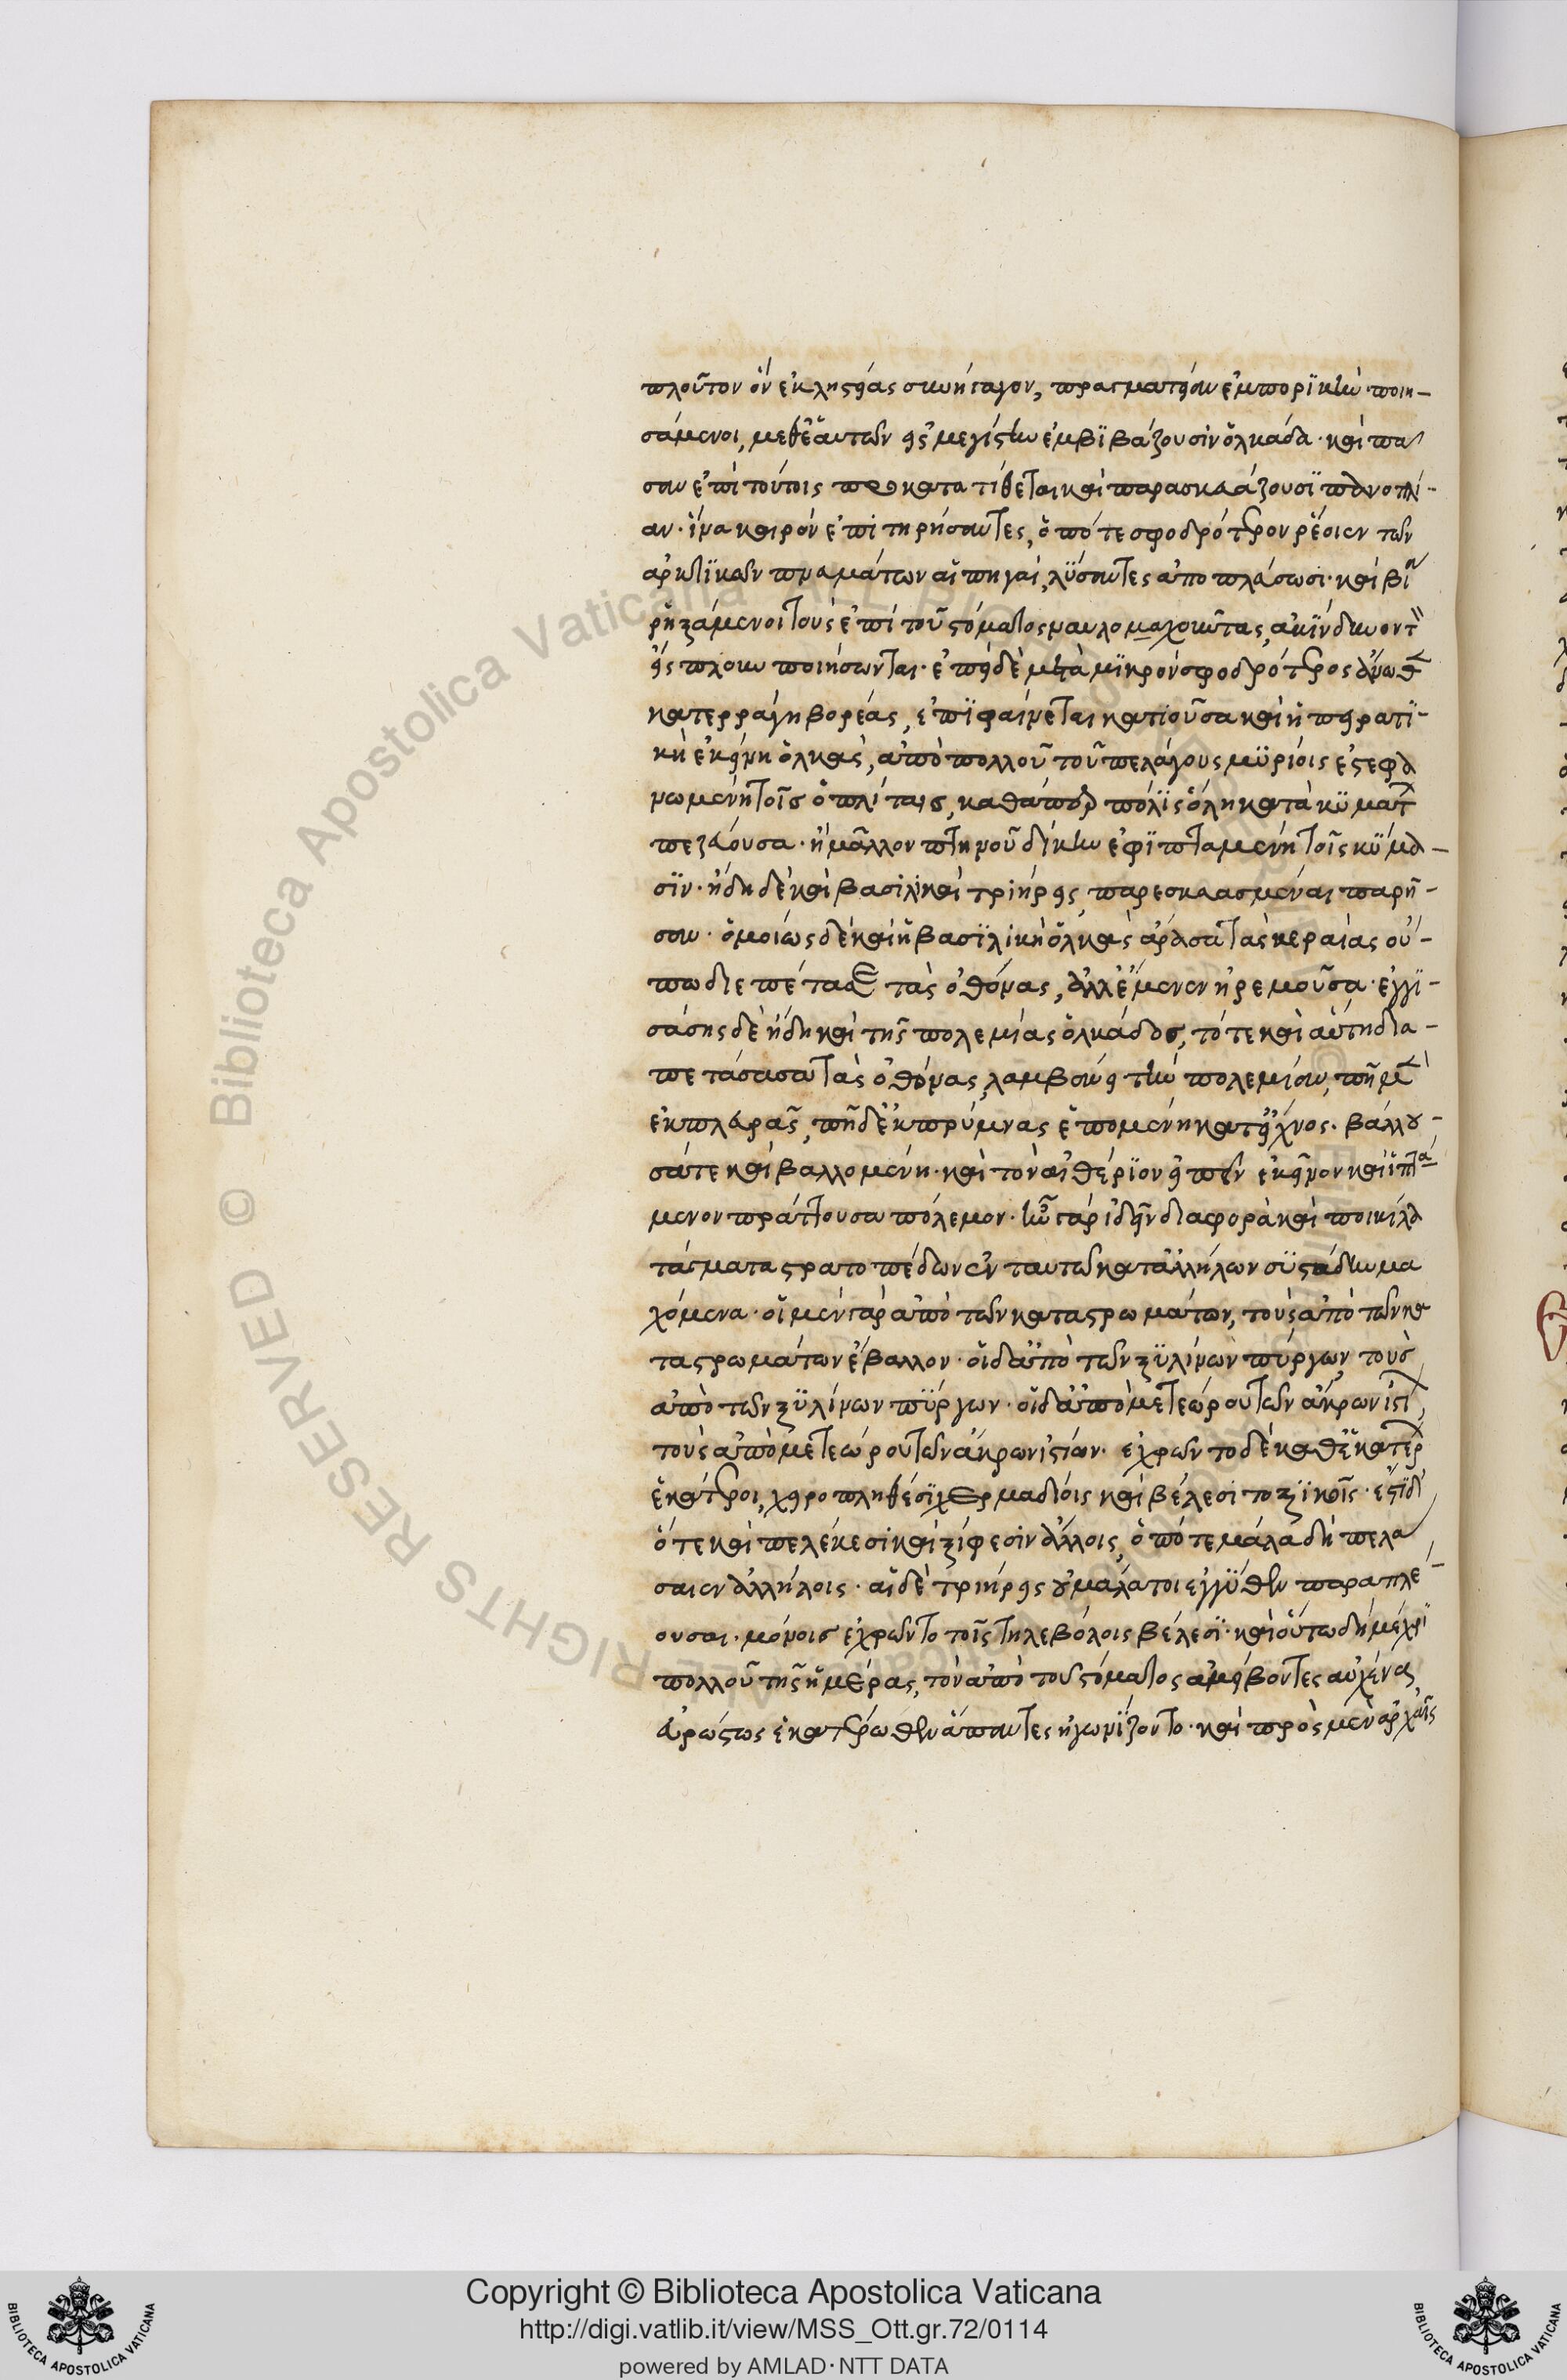 πλοῦτον ὃν ἐκ λῃστείας συνήγαγον, πραγματείαν ἐμπορικὴν ποιη-
σάμενοι, μεθ' ἑαυτῶν εἰς μεγίστην ἐμβιβάζουσιν ὁλκάδα· καὶ πα
σαν ἐπὶ τούτοις προκατατίθεται καὶ παρασκευάζουσι πανοπλί-
αν· ἵνα καιρὸν ἐπιτηρήσαντες, ὁπότε σφοδρότερον ῥέοιεν τῶν
ἀρκτικῶν πνευμάτων αἱ πηγαί, λύσαντες ἀποπλεύσωσι· καὶ βία
ῥηξάμενοι τοὺς ἐπὶ τοῦ στόματος ναυλομαχοῦντας, ἀκίνδυνον τὸν
εἰς πλοῦν ποιήσωνται· ἐπεὶ δὲ μετὰ μικρὸν σφοδρότερος ἄνωθεν
κατερράγη βορέας, ἐπιφαίνεται κατιοῦσα καὶ ἡ πειρατι-
κὴ ἐκείνη ὁλκὰς, ἀπὸ πολλοῦ τοῦ πελάγους μυρίοις ἐστεφα
νωμένη τοῖς ὁπλίταις, καθάπερ πόλις ὅλη κατὰ κυμάτων
πεζεύουσα· ἢ μᾶλλον πτηνοῦ δίκην ἐφιπταμένη τοῖς κύμα-
σιν· ἤδη δὲ καὶ βασιλικαὶ τριήρεις παρεσκευασμέναι παρῆ-
σαν· ὁμοίως δὲ καὶ ἡ βασιλικὴ ὁλκὰς ἄρασα τὰς κεραίας οὔ-
πω διεπέτασε τὰς ὀθόνας, ἀλλ' ἔμενεν ἠρεμοῦσα· ἐγγι-
σάσης δὲ ἤδη καὶ τῆς πολεμίας ὁλκάδος, τότε καὶ αὐτὴ δια-
πετάσασα τὰς ὀθόνας, λαμβάνει τὴν πολεμίαν, πῆ μὲν
ἐκ πλευρᾶς, πῆ δ' ἐκ πρύμνας ἑπομένη κατ' ἴχνος· βάλλου-
σά τε καὶ βαλλομένη· καὶ τὸν αἰθέριον εἰπεῖν ἐκεῖνον καὶ ἱπτά
μενον πράττουσα πόλεμον· ἦν γὰρ ἰδεῖν διάφορα καὶ ποικίλα
τάγματα στρατοπέδων ἐν ταυτῶ κατ' ἀλλήλων συστάδην μα
χόμενα· οἱ μὲν γὰρ ἀπὸ τῶν καταστρωμάτων, τοὺς ἀπὸ τῶν κα
ταστρωμάτων ἔβαλλον· οἱ δ' ἀπὸ τῶν ξυλίνων πύργων, τοὺς
ἀπὸ τῶν ξυλίνων πύργων· οἱ δ' ἀπὸ μετεώρου τῶν ἄκρων ἱστίων,
τοὺς ἀπὸ μετεώρου τῶν ἄκρων ἱστίων· ἐχρῶντο δὲ καθ' ἑκατέρων
ἑκάτεροι, χειροπληθέσι χερμαδίοις καὶ βέλεσι τοξικοῖς· ἔστι δ'
ὅτε καὶ πελέκεσι καὶ ξίφεσιν ἄλλοις, ὁπότε μάλα δὴ πελά
σαιεν ἀλλήλοις· αἱ δὲ τριήρεις οὐ μάλα τοι ἐγγύθεν παραπλέ-
ουσαι· μόνοις ἐχρῶντο τοῖς τηλεβόλοις βέλεσι· καὶ οὕτω δὴ μέχρι
πολλοῦ τῆς ἡμέρας, τὸν ἀπὸ τοῦ στόματος ἀμείβοντες αὐχένα,
εὐρώστως ἑκατέρωθεν ἅπαντες ἠγωνίζοντο· καὶ πρὸς μὲν ἀρχαῖς
Copyright © Biblioteca Apostolica Vaticana
http://digi.vatlib.it/view/MSS_Ott.gr.72/0114
powered by AMLAD·NTT DATA
© Biblioteca Apostolica Vaticana ALL RIGHTS RESERVED
BIBLIOTECA APOSTOLICA VATICANA
BIBLIOTECA APOSTOLICA VATICANA